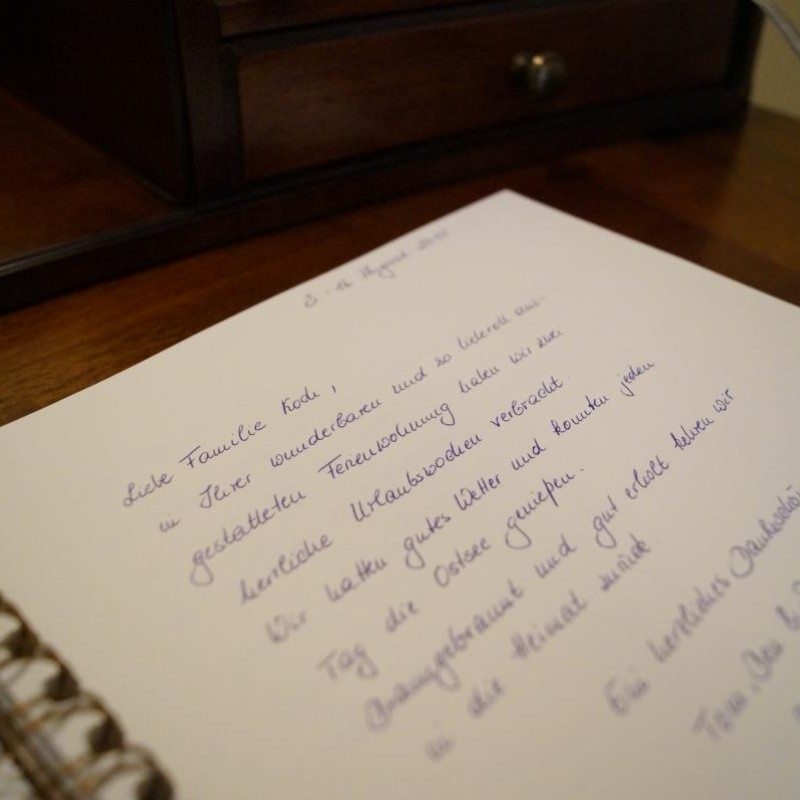 August
Liebe Familie Koch,
in Ihrer wunderbaren und so liebevoll aus-
gestatteten Ferienwohnung haben wir zwei
herrliche Urlaubswochen verbracht.
Wir hatten gutes Wetter und konnten jeden
Tag die Ostsee genießen.
und gut erholt kehren wir
in die Heimat zurück.
Ein herzliches Dankeschön